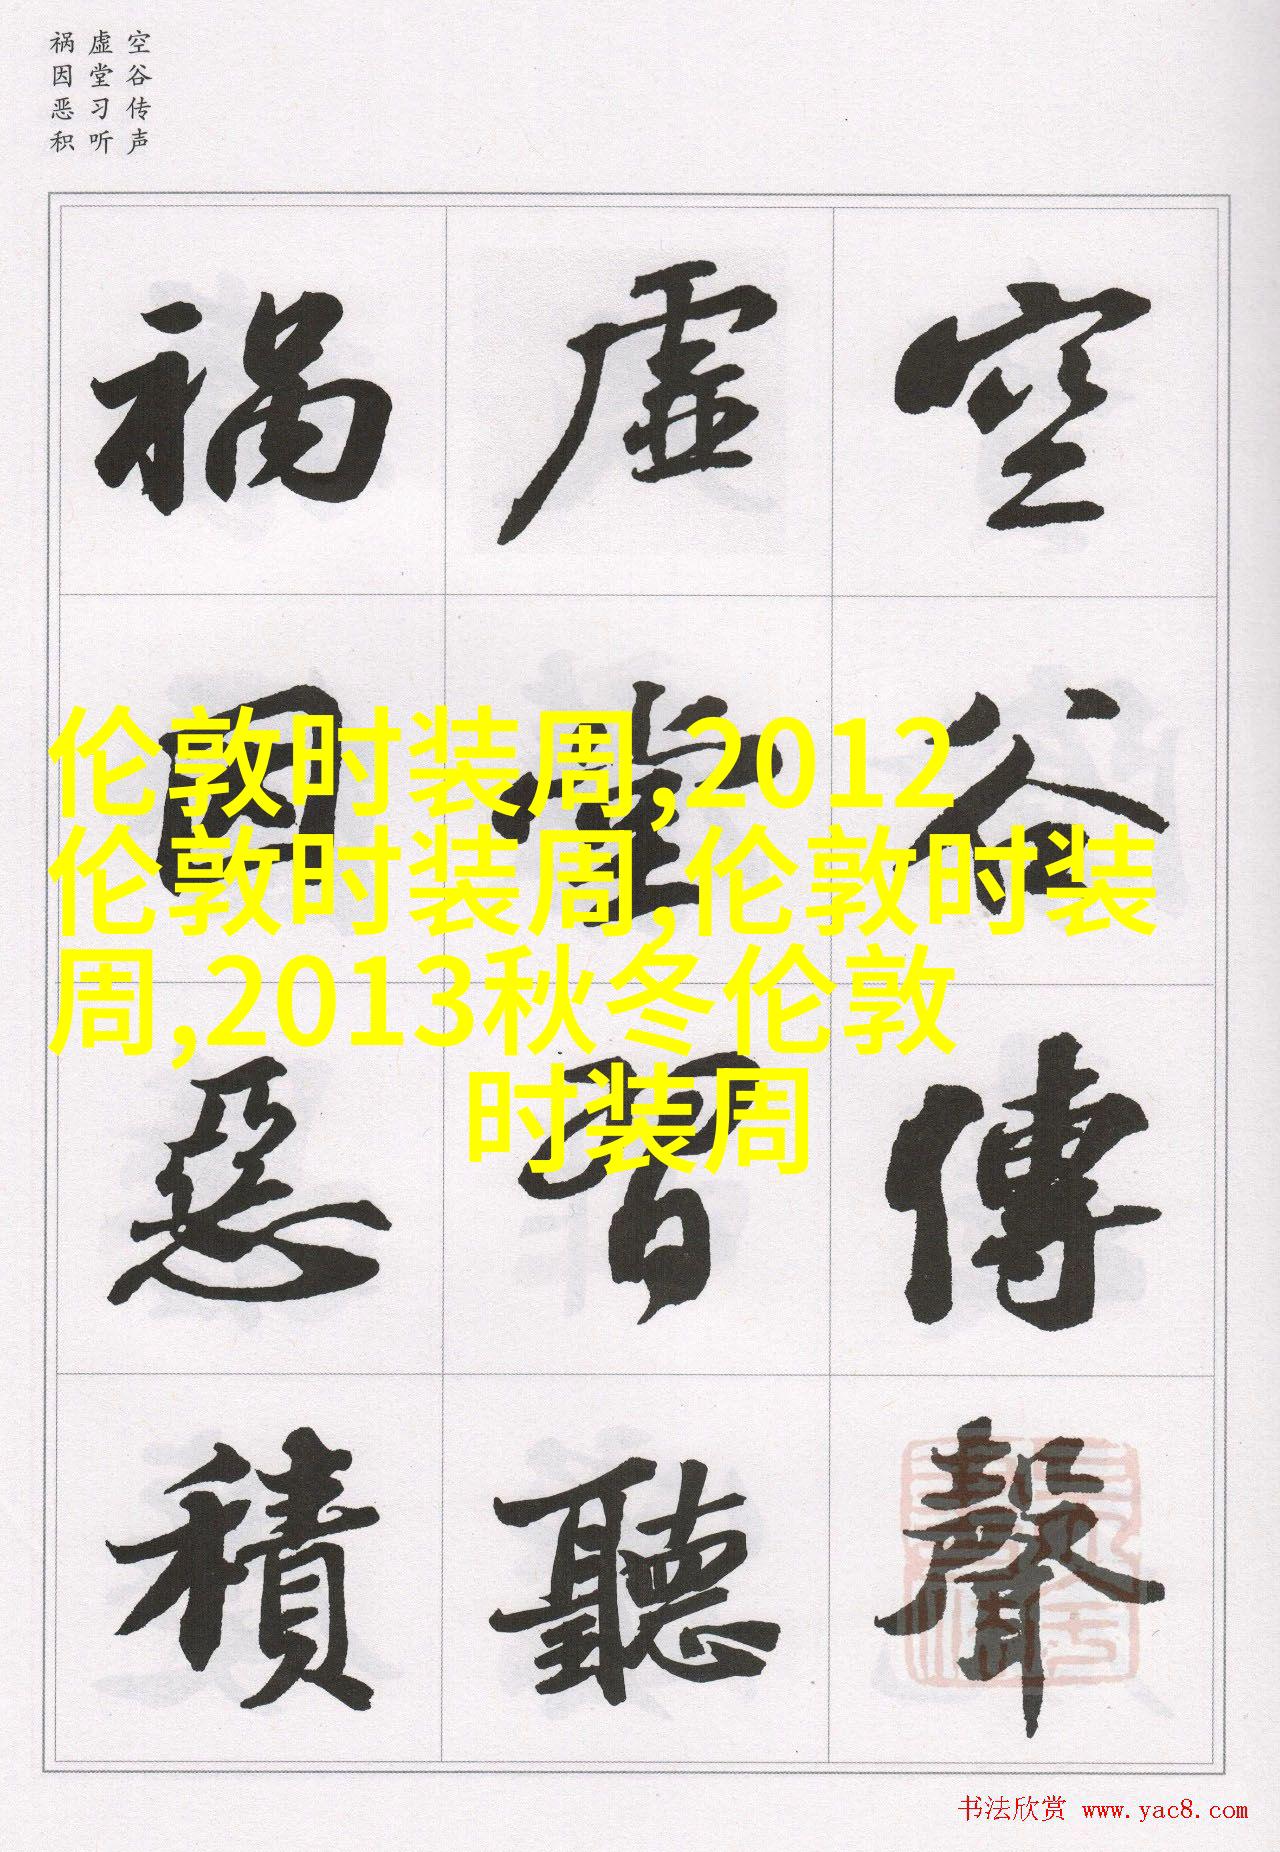 空谷传声
虚堂习听
祸因恶积
空谷傳聲
虛堂習聽
禍因惡積
伦敦时装周,2012
伦敦时装周,伦敦时装
周,2013秋冬伦敦
时装周
书法欣赏 www.yac8.com